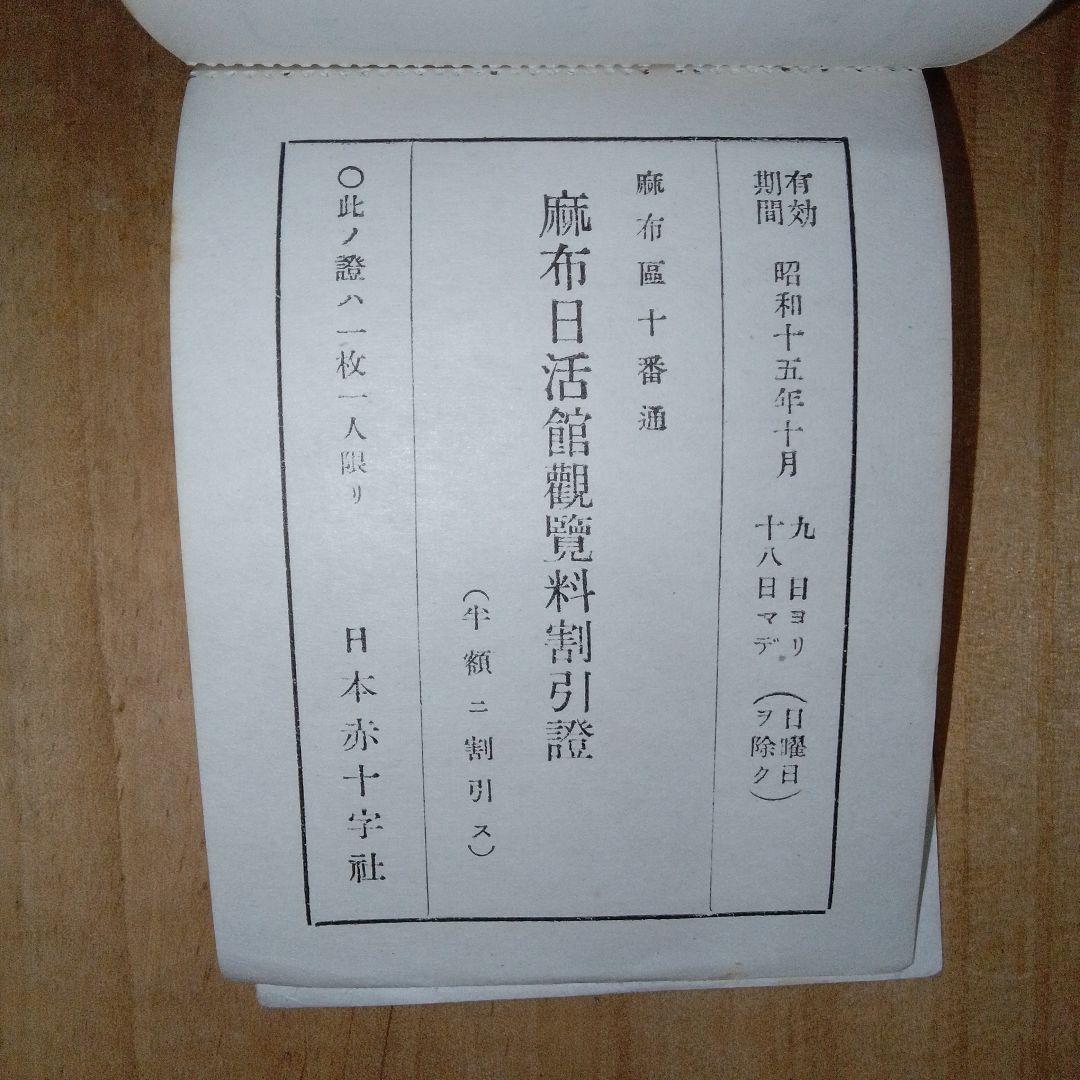 有効期間 昭和十五年十月 九日ヨリ十八日マデ (日曜日ヲ除ク)
麻布區十番通
麻布日活館觀覽料割引證
(半額ニ割引ス)
〇此ノ證ハ一枚一人限リ
日本赤十字社